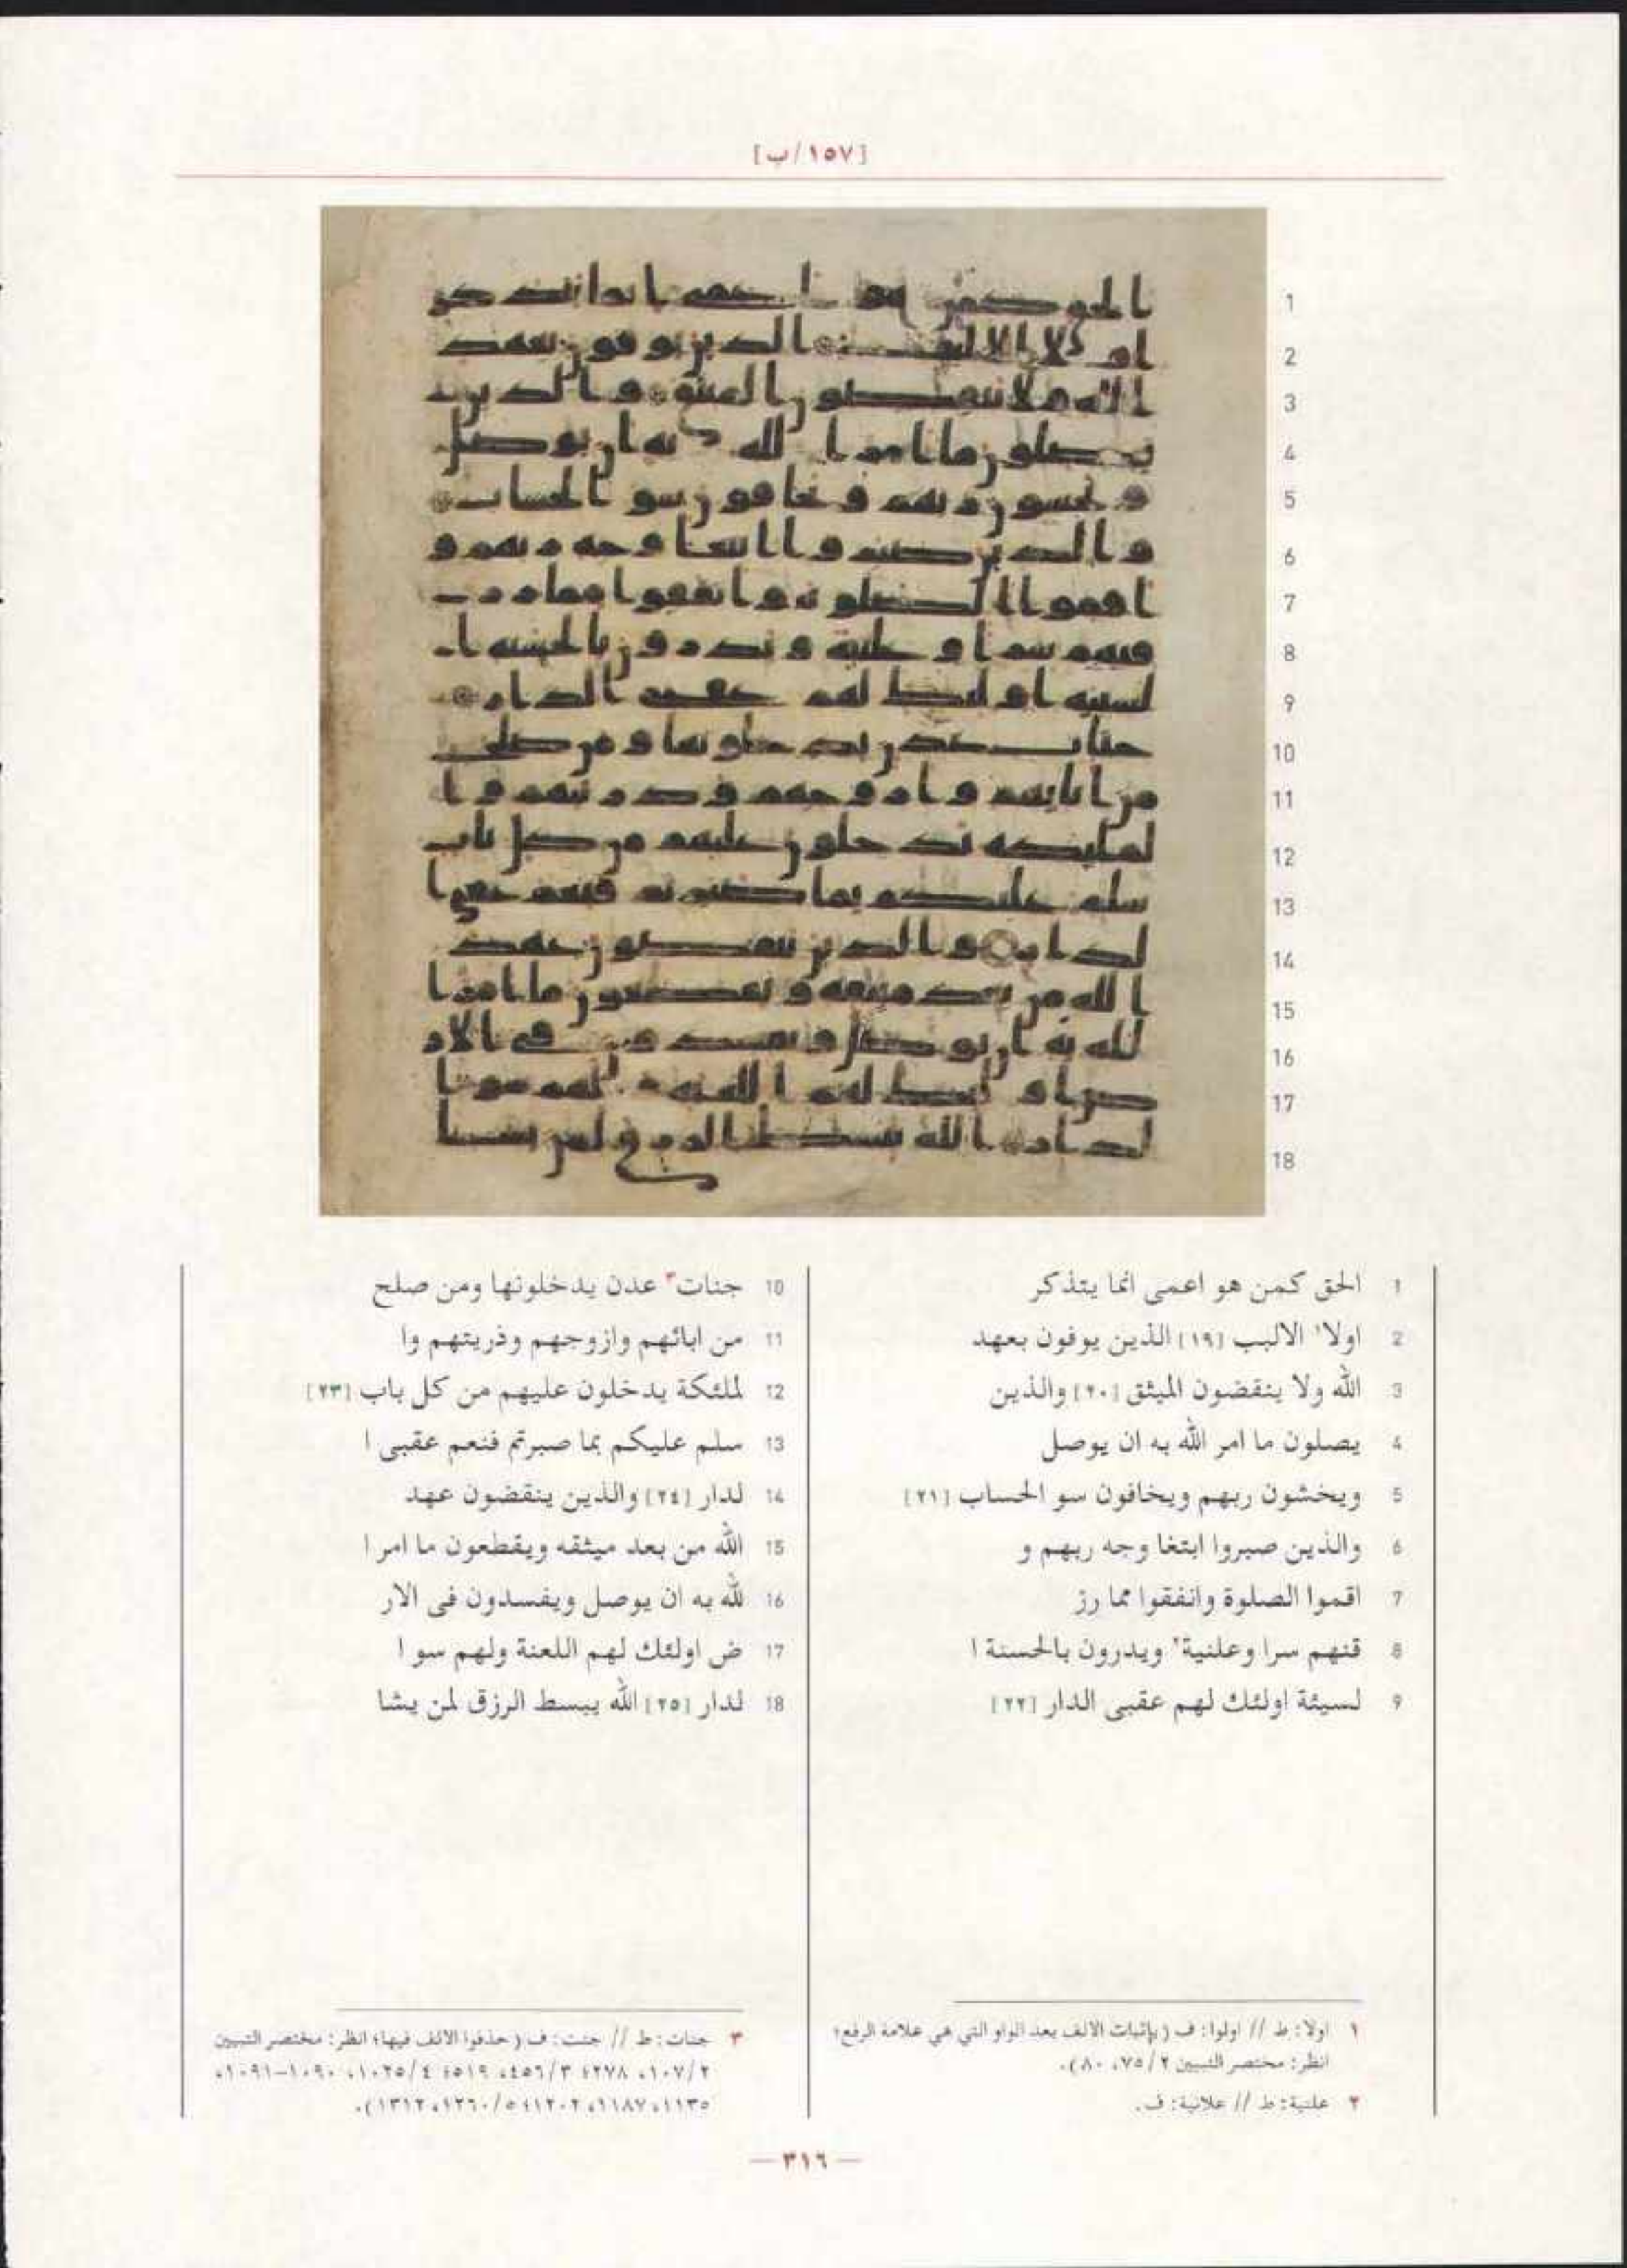 [١٥٧/ب]
1 الحق كمن هو اعمى انما يتذكر
2 اولا١ الالبب [١٩] الذين يوفون بعهد
3 الله ولا ينقضون الميثق [٢٠] والذين
4 يصلون ما امر الله به ان يوصل
5 ويخشون ربهم ويخافون سو الحساب [٢١]
6 والذين صبروا ابتغا وجه ربهم و
7 اقموا الصلوة وانفقوا مما رز
8 قنهم سرا وعلنية٢ ويدرون بالحسنة ا
9 لسيئة اولئك لهم عقبى الدار [٢٢]
10 جنات٣ عدن يدخلونها ومن صلح
11 من ابائهم وازوجهم وذريتهم وا
12 لملئكة يدخلون عليهم من كل باب [٢٣]
13 سلم عليكم بما صبرتم فنعم عقبى ا
14 لدار [٢٤] والذين ينقضون عهد
15 الله من بعد ميثقه ويقطعون ما امر ا
16 لله به ان يوصل ويفسدون فى الار
17 ض اولئك لهم اللعنة ولهم سو ا
18 لدار [٢٥] الله يبسط الرزق لمن يشا
١ اولا: ط // اولوا: ف (بإثبات الالف بعد الواو التي هي علامة الرفع؛
انظر: مختصر التبيين ٢/ ٧٥، ٨٠).
٢ علنية: ط // علانية: ف.
٣ جنات: ط // جنت: ف (حذفوا الالف فيها؛ انظر: مختصر التبيين
٢/ ١٠٧، ٢٧٨؛ ٣/ ٤٥٦، ٥١٩؛ ٤/ ١٠٢٥، ١٠٩٠-١٠٩١،
١١٣٥، ١١٨٧، ١٢٠٢؛ ٥/ ١٢٦٠، ١٣١٢).
— ٣١٦ —